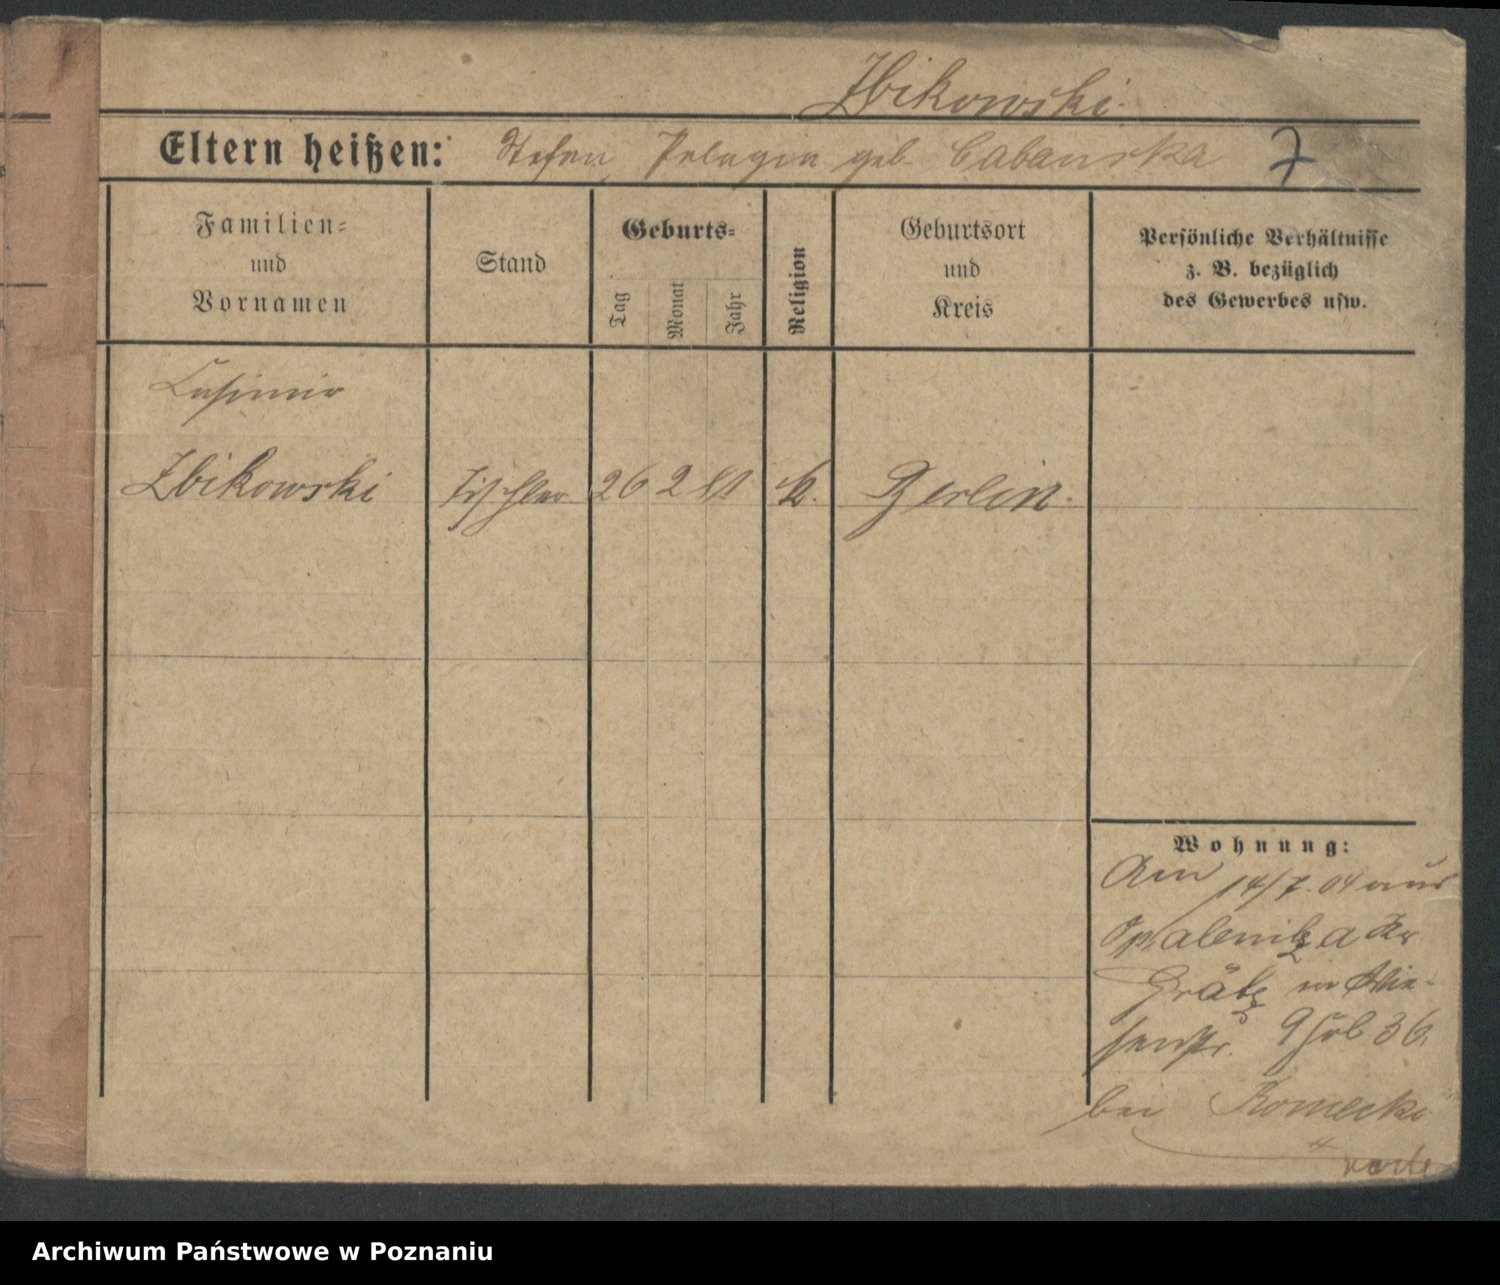 Zbikowski
Eltern heißen: Stefan, Pelagia geb. Cabanska 7
Familien-
und
Vornamen
Stand
Geburts-
Tag
Monat
Jahr
Religion
Geburtsort
und
Kreis
Persönliche Verhältnisse
z. B. bezüglich
des Gewerbes usw.
Casimir
Zbikowski Tischler 26 2 81 k. Berlin.
Wohnung:
Am 14/7. 04 aus
Opalenitza Kr.
Grätz in Wie-
senstr. 36.
bei Komecki
verte
Archiwum Państwowe w Poznaniu